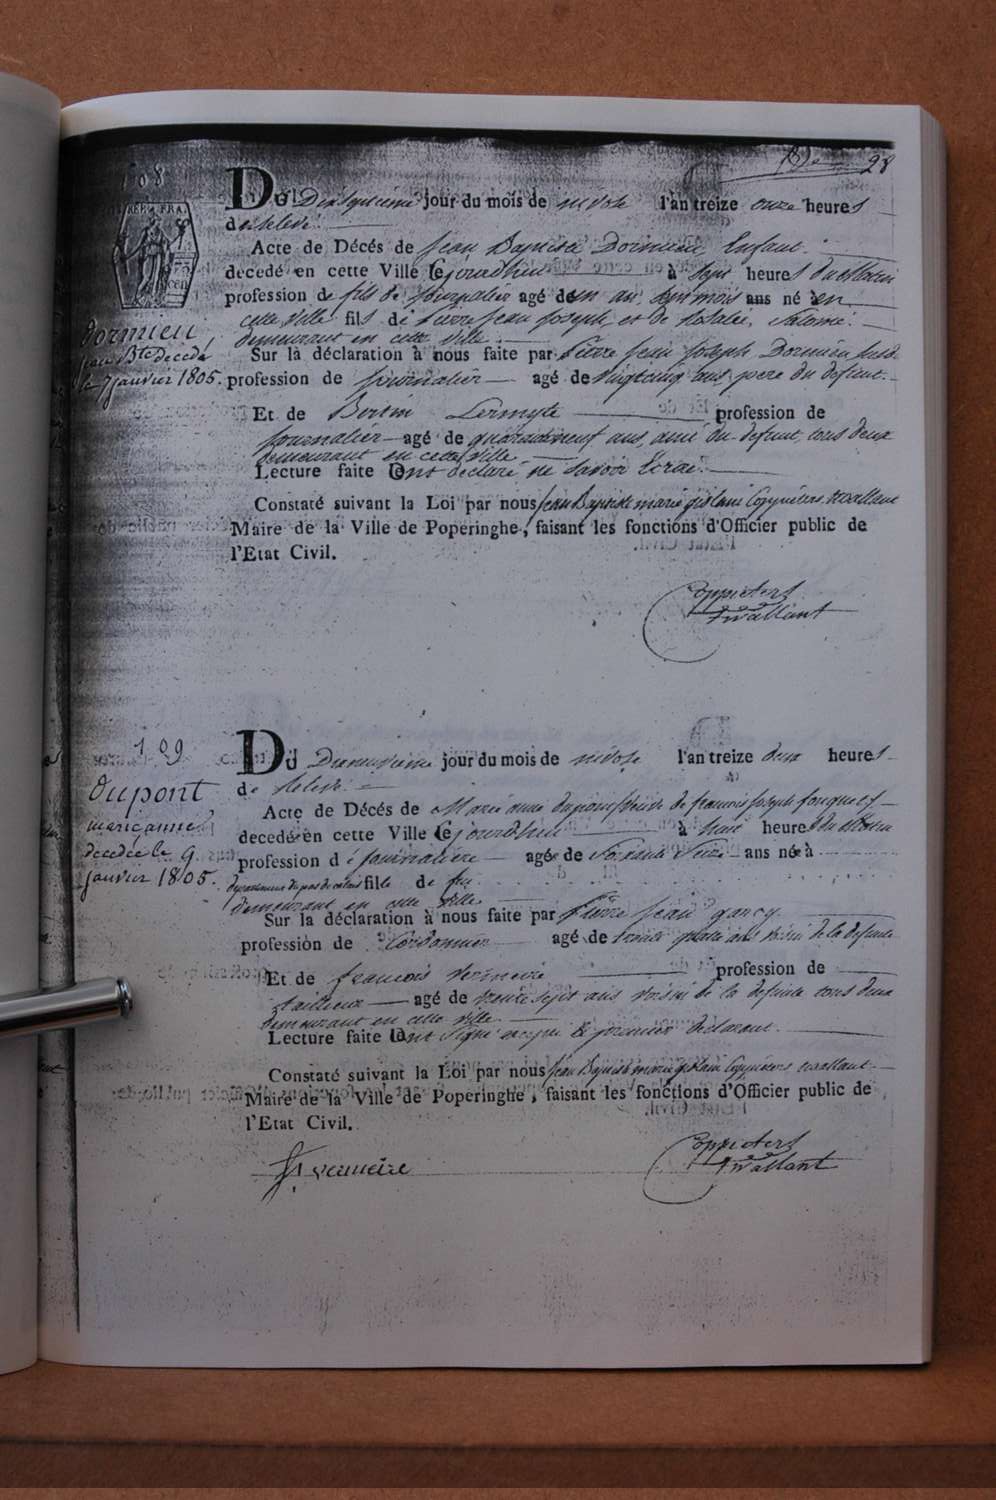 28
108
RÉP. FRA.
Du Dixseptieme jour du mois de nivose l'an treize onze heures
de relevé.
Acte de Décés de Jean Baptiste Dormieu Enfant
decedé en cette Ville Ce jourdhui à sept heures du Matin
profession de fils de journalier agé d'un an sept mois ans né à en
cette Ville fils de Pierre Jean Joseph, et de Rosalie, Salomé
demeurant en cette ville
dormieu
jean Bte decedé
le 7 janvier 1805.
Sur la déclaration à nous faite par Pierre Jean Joseph Dormieu
profession de journalier agé de vingtcinq ans pere du defunt
Et de Bertin Lermyte profession de
journalier agé de quaranteneuf ans, ami du defunt, tous deux
demeurant en cette ville
Lecture faite Ont declaré ne savoir Ecrire
Constaté suivant la Loi par nous Jean Baptiste marie gislain Coppieters twallant
Maire de la Ville de Poperinghe, faisant les fonctions d'Officier public de
l'Etat Civil.
Coppieters
twallant
109
Du Dixneuvieme jour du mois de nivose l'an treize deux heures
de relevé
dupont
marieanne
decedée le 9
janvier 1805.
Acte de Décés de Marie anne dupont de francois joseph
decedé en cette Ville Ce jourdhui à huit heures du Matin
profession de journaliere agé de Soixante ans né à
departement du pas de calais fille de feu
demeurant en cette ville
Sur la déclaration à nous faite par Pierre Jean garcy
profession de Cordonnier agé de trente quatre ans voisin de la defunte
Et de francois vermeire profession de
tailleur agé de trente sept ans voisin de la defunte tous deux
demeurant en cette ville
Lecture faite Ont signé excepté le premier declarant
Constaté suivant la Loi par nous Jean Baptiste marie gislain Coppieters twallant
Maire de la Ville de Poperinghe, faisant les fonctions d'Officier public de
l'Etat Civil.
vermeire
Coppieters
twallant